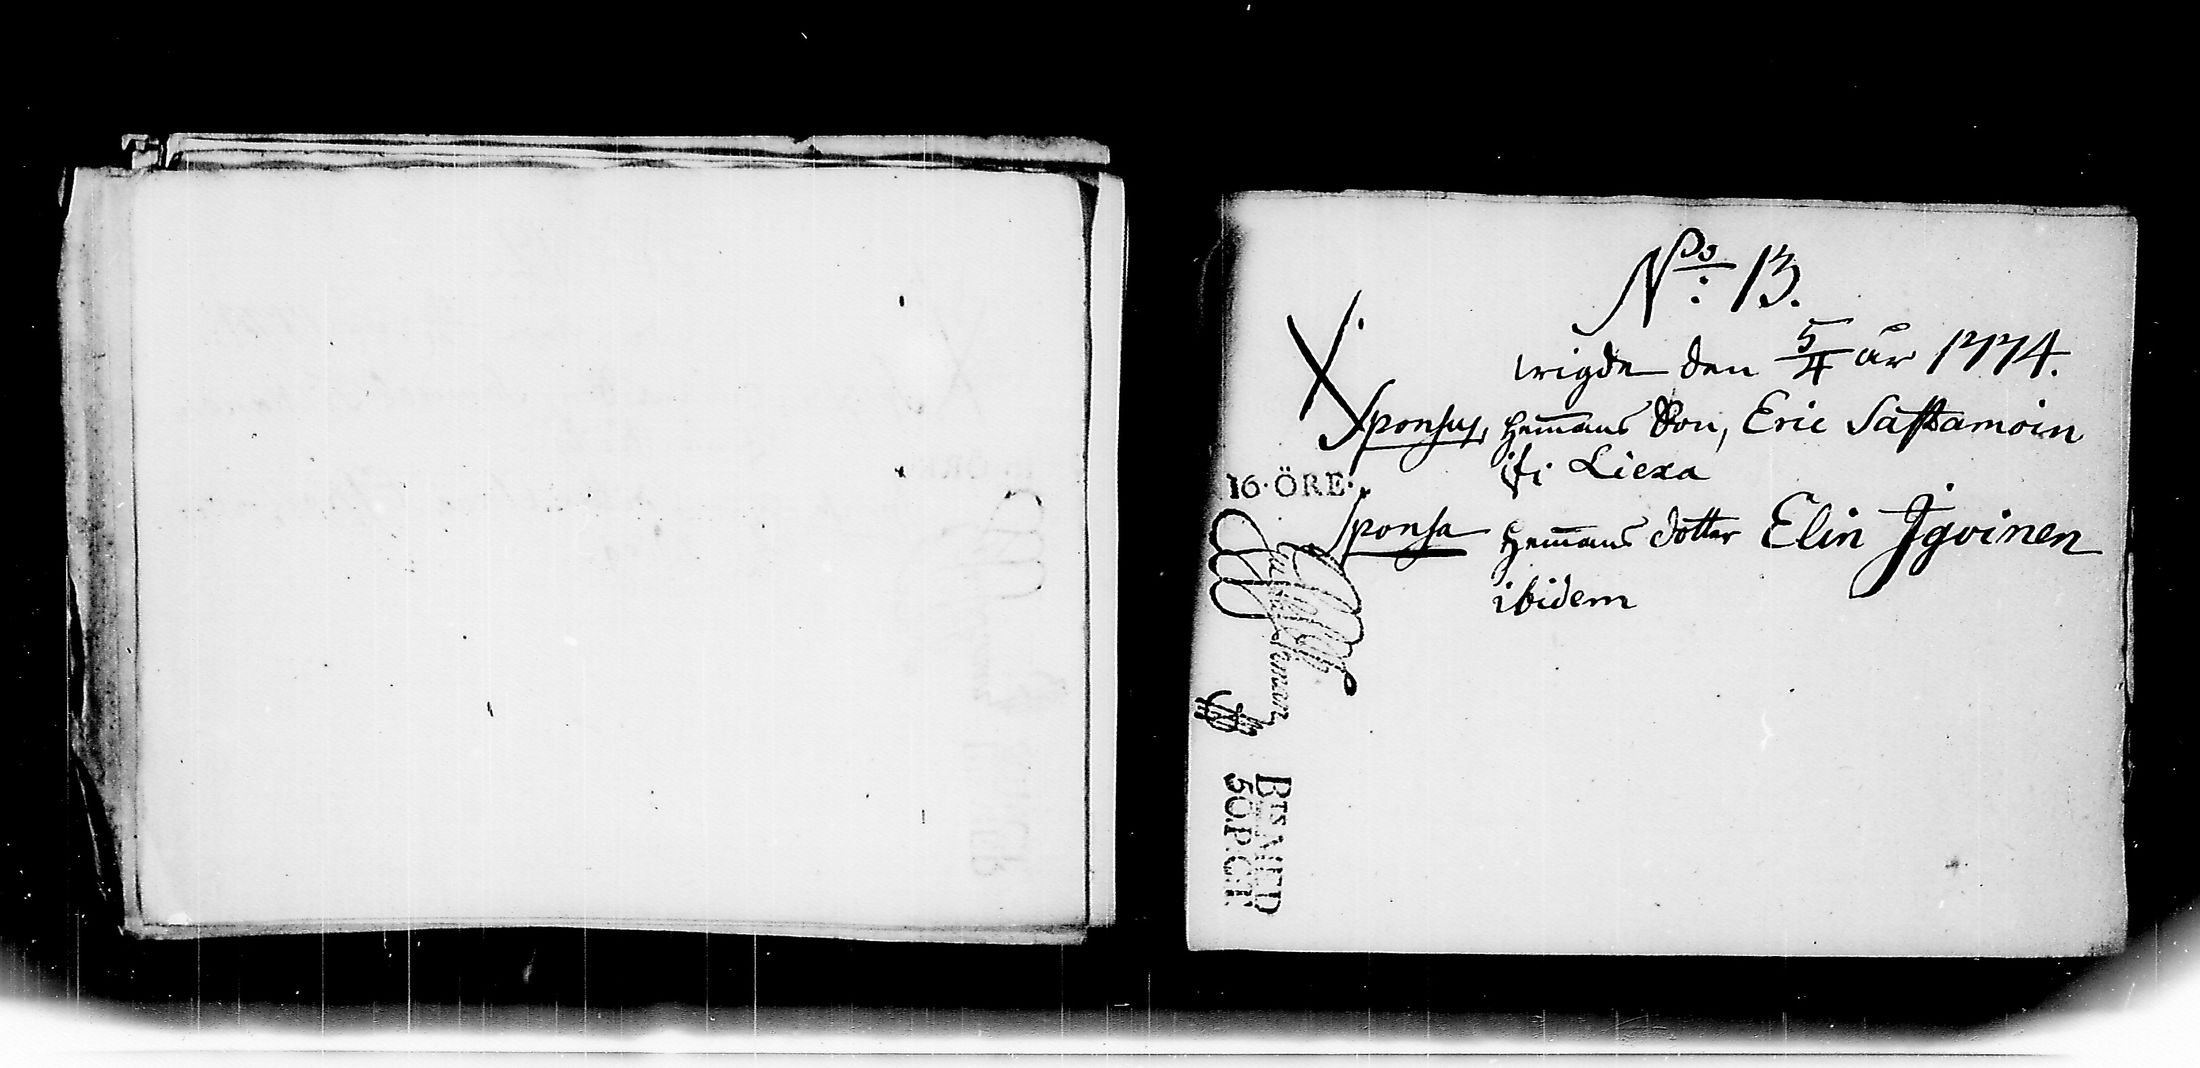 N:ro 13.
wigde den 5/4 år 1774.
Sponsus, hem̄ans Son, Eric Sastamoin
ifr Liexa
16·ÖRE·
Sponsa hem̄ans dotter Elin Igoinen
ibidem
BTS MED
50.P.CT.